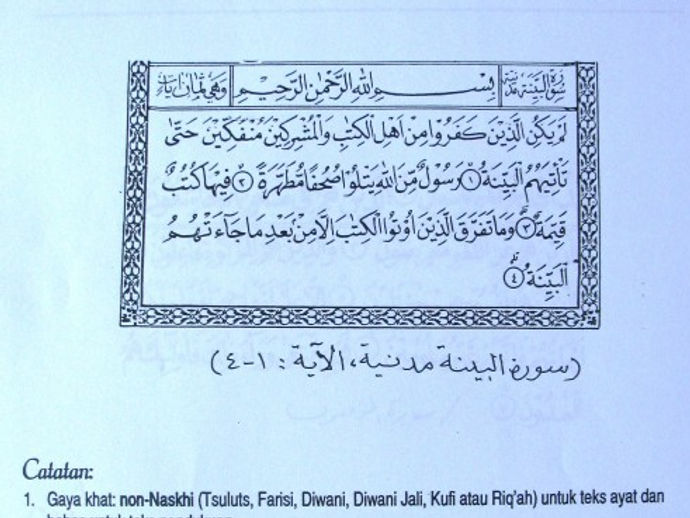 سورة البينة مدنية بِسْمِ اللهِ الرَّحْمٰنِ الرَّحِيْمِ وهي ثمان ايات
لَمْ يَكُنِ الَّذِيْنَ كَفَرُوْا مِنْ اَهْلِ الْكِتٰبِ وَالْمُشْرِكِيْنَ مُنْفَكِّيْنَ حَتّٰى
تَأْتِيَهُمُ الْبَيِّنَةُ ۙ﴿١﴾ رَسُوْلٌ مِّنَ اللهِ يَتْلُوْا صُحُفًا مُّطَهَّرَةً ۙ﴿٢﴾ فِيْهَا كُتُبٌ
قَيِّمَةٌ ۗ﴿٣﴾ وَمَا تَفَرَّقَ الَّذِيْنَ اُوْتُوا الْكِتٰبَ اِلَّا مِنْۢ بَعْدِ مَا جَآءَتْهُمُ
الْبَيِّنَةُ ۗ﴿٤﴾
(سورة البينة مدنية، الآية : ١-٤)
Catatan:
1. Gaya khat: non-Naskhi (Tsuluts, Farisi, Diwani, Diwani Jali, Kufi atau Riq'ah) untuk teks ayat dan